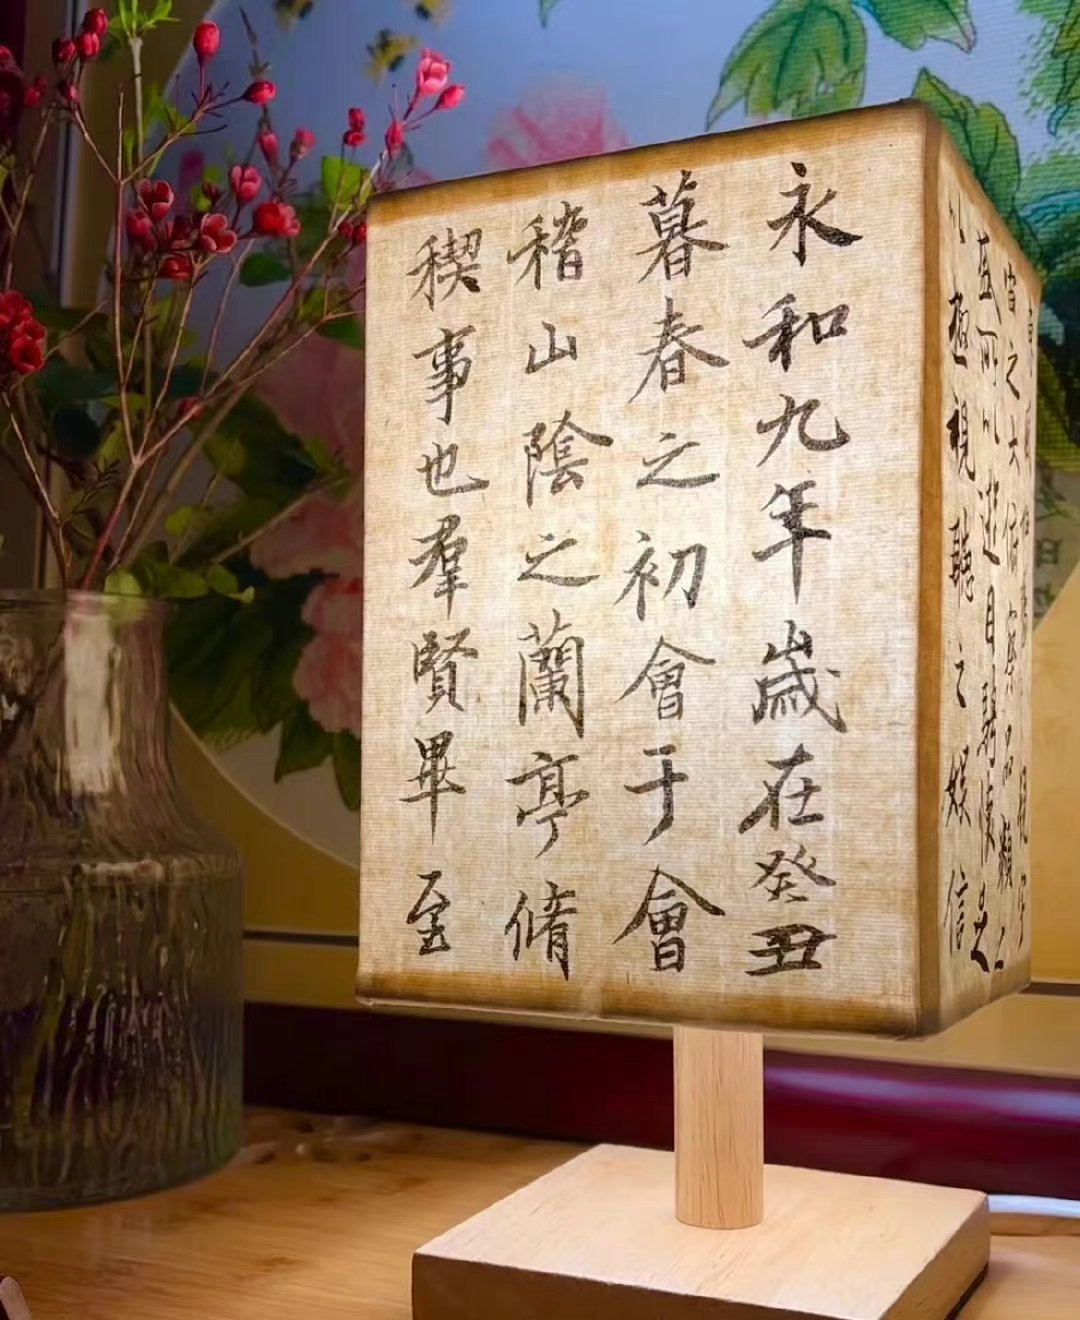 永和九年歲在癸丑
暮春之初會于會
稽山陰之蘭亭脩
稧事也羣賢畢至
宙之大俯察品類之
盛所以遊目騁懷足
以極視聽之娛信